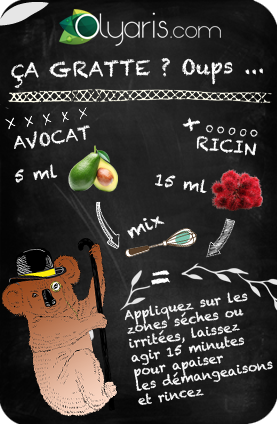 Olyaris.com
ÇA GRATTE ? Oups ...
x x x x x
AVOCAT
x o o o o o
RICIN
5 ml
15 ml
mix
=
Appliquez sur les
zones sèches ou
irritées, laissez
agir 15 minutes
pour apaiser
les démangeaisons
et rincez